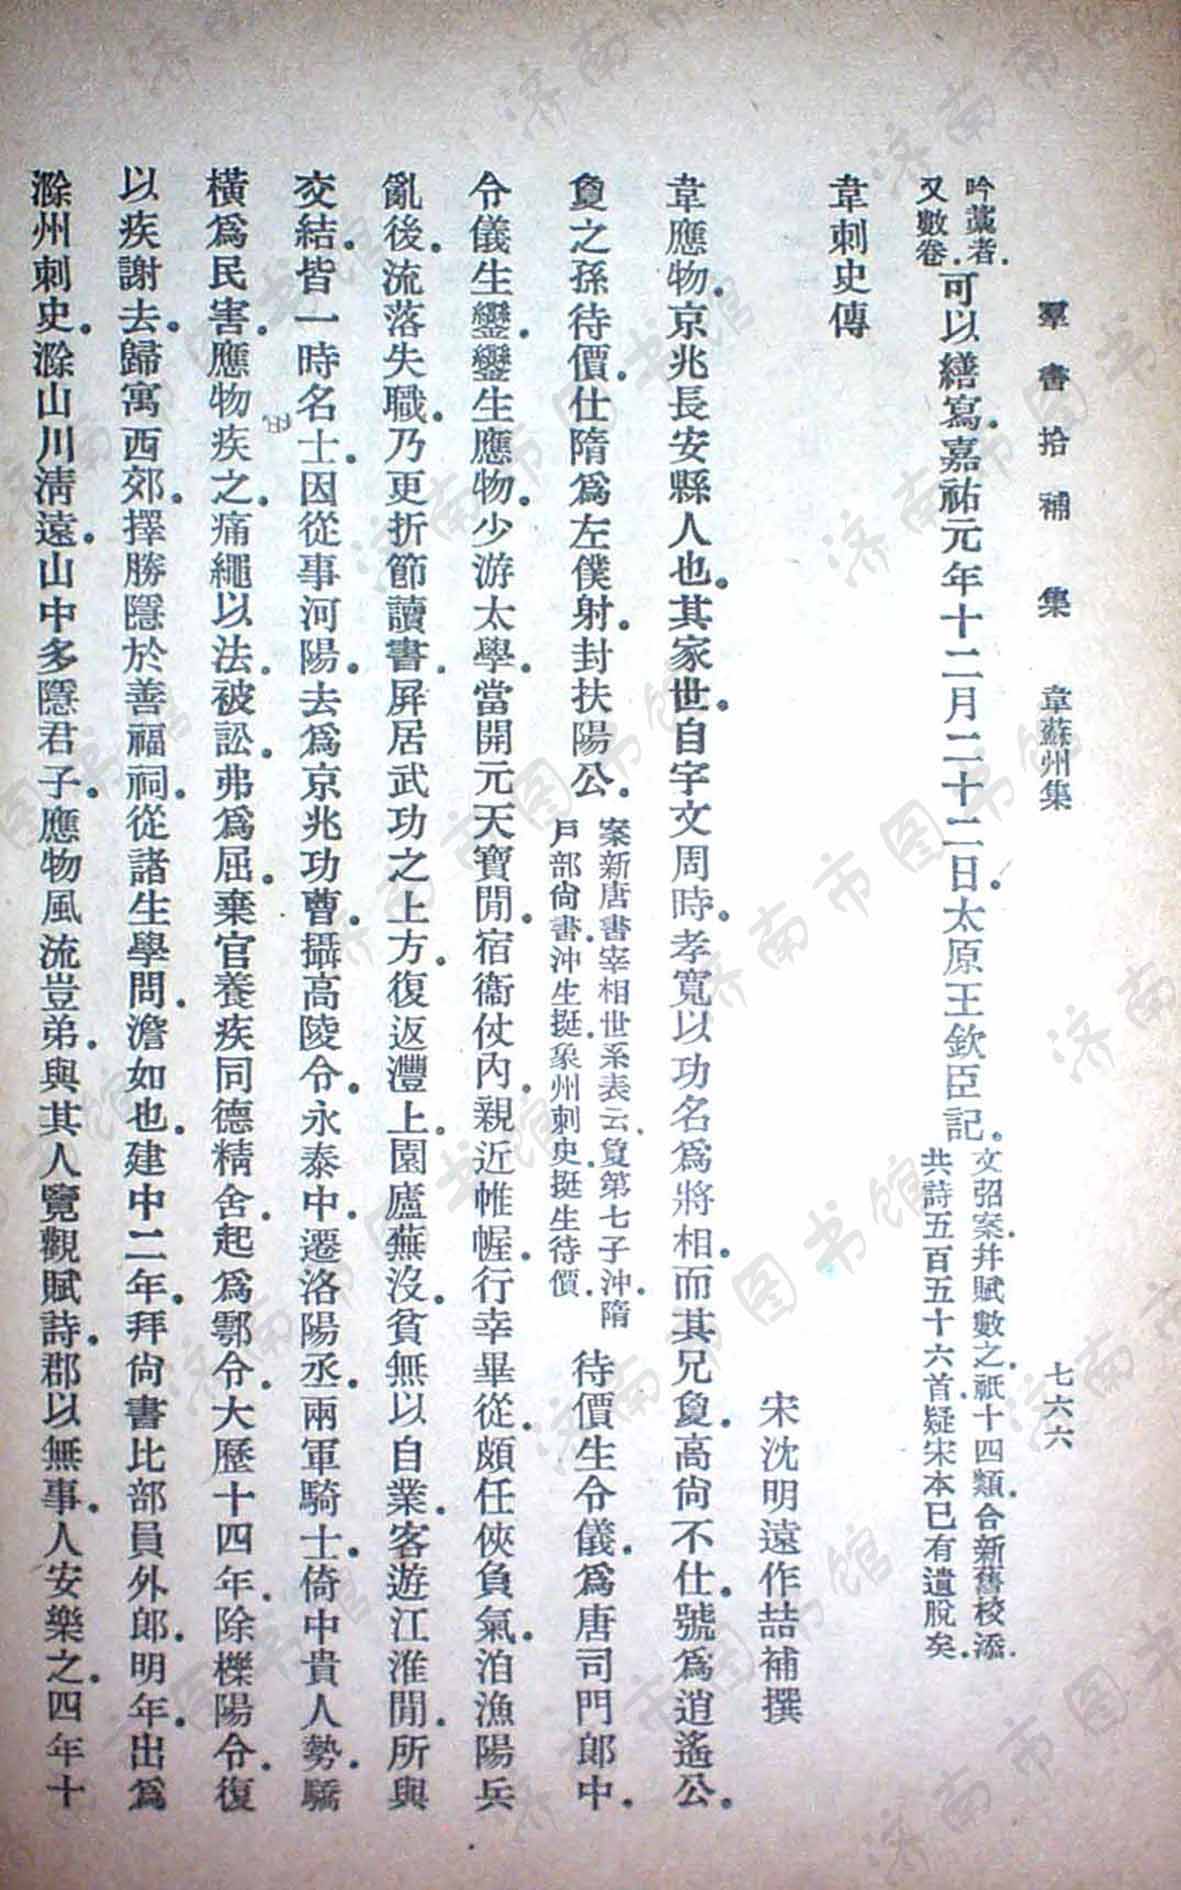 羣書拾補 集 韋蘇州集 七六六
吟藁者。
又數卷。
可以繕寫。嘉祐元年十二月二十二日。太原王欽臣記。
文弨案并賦數之。祇十四類。合新舊校添。
共詩五百五十六首。疑宋本已有遺脫矣。
韋刺史傳
宋沈明遠作喆補撰
韋應物。京兆長安縣人也。其家世。自宇文周時。孝寬以功名爲將相。而其兄敻。高尙不仕。號爲逍遙公。
敻之孫待價。仕隋爲左僕射。封扶陽公。
案新唐書宰相世系表云。敻第七子沖。隋
戶部尙書。沖生挺。象州刺史。挺生待價。
待價生令儀。爲唐司門郎中。
令儀生鑾。鑾生應物。少游太學。當開元天寶閒。宿衞仗內。親近帷幄。行幸畢從。頗任俠負氣。泊漁陽兵
亂後。流落失職。乃更折節讀書。屛居武功之上方。復返灃上。園廬蕪沒。貧無以自業。客遊江淮閒。所與
交結。皆一時名士。因從事河陽。去爲京兆功曹。攝高陵令。永泰中。遷洛陽丞。兩軍騎士。倚中貴人勢。驕
橫爲民害。應物疾之。痛繩以法。被訟。弗爲屈。棄官養疾同德精舍。起爲鄠令。大歷十四年。除櫟陽令。復
以疾謝去。歸寓西郊。擇勝隱於善福祠。從諸生學問。澹如也。建中二年。拜尙書比部員外郎。明年。出爲
滁州刺史。滁山川淸遠。山中多隱君子。應物風流豈弟。與其人覽觀賦詩。郡以無事。人安樂之。四年十